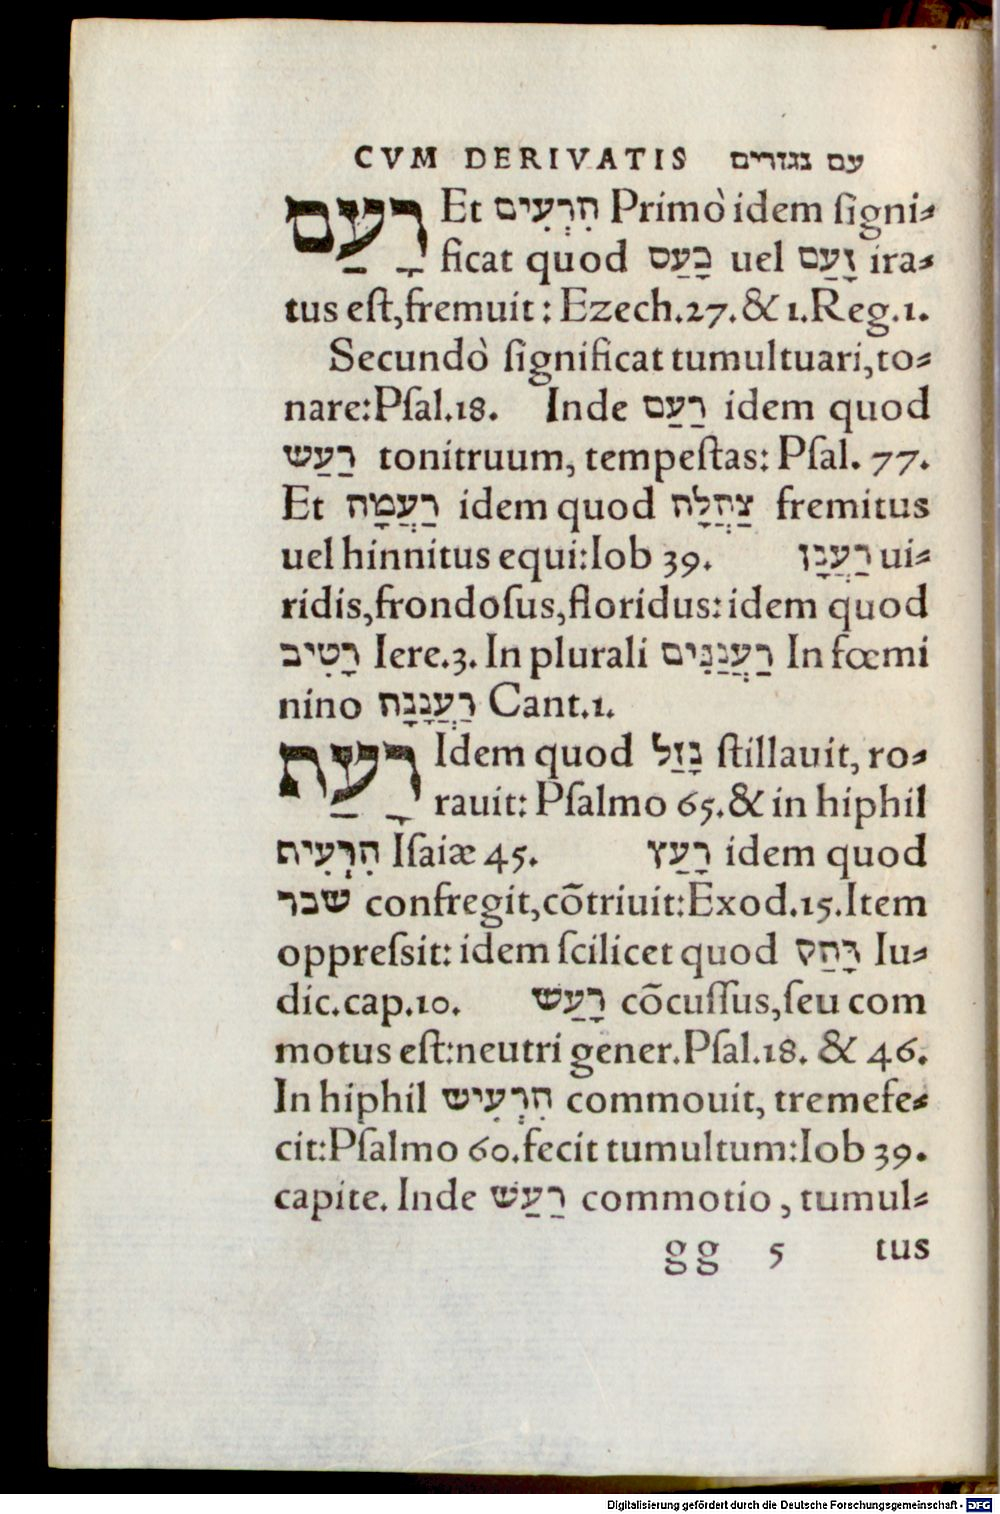 CVM DERIVATIS עם נגזרים
רָעַם Et הִרְעִים Primò idem ſigni⸗
ficat quod כָּעַס uel זָעַם ira⸗
tus eſt, fremuit: Ezech.27. & 1. Reg.1.
Secundò ſignificat tumultuari, to⸗
nare: Pſal.18. Inde רַעַם idem quod
רַעַש tonitruum, tempeſtas: Pſal. 77.
Et רַעֲמָה idem quod צַהֲלָה fremitus
uel hinnitus equi: Iob 39. רַעֲנָן ui⸗
ridis, frondoſus, floridus: idem quod
רָטִיב Iere.3. In plurali רַעֲנַנִּים In fœmi
nino רַעֲנַנָה Cant.1.
רָעַף Idem quod נָזַל ſtillauit, ro⸗
rauit: Pſalmo 65. & in hiphil
הִרְעִיף Iſaiæ 45. רָעַץ idem quod
שבר confregit, cõtriuit: Exod.15. Item
oppreſsit: idem ſcilicet quod דָּחַק Iu⸗
dic. cap.10. רָעַשׁ cõcuſſus, ſeu com
motus eſt: neutri gener. Pſal.18. & 46.
In hiphil הִרְעִישׁ commouit, tremefe⸗
cit: Pſalmo 60. fecit tumultum: Iob 39.
capite. Inde רַעַשׁ commotio, tumul⸗
gg 5 tus
Digitalisierung gefördert durch die Deutsche Forschungsgemeinschaft - DFG